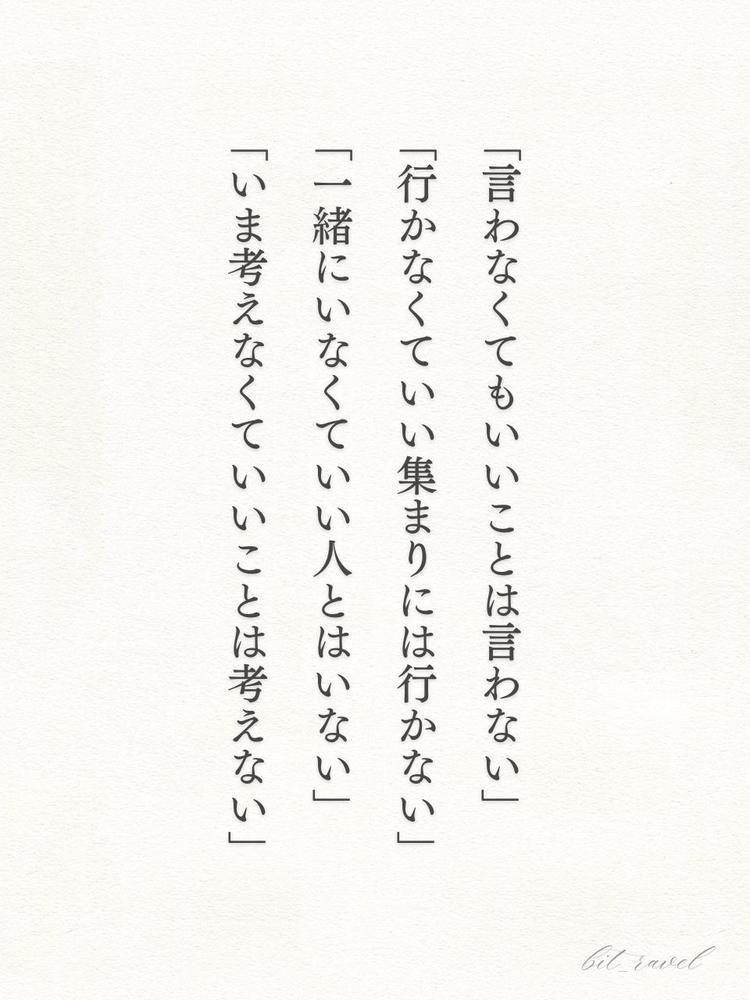 「言わなくてもいいことは言わない」
「行かなくていい集まりには行かない」
「一緒にいなくていい人とはいない」
「いま考えなくていいことは考えない」
bit_ravel